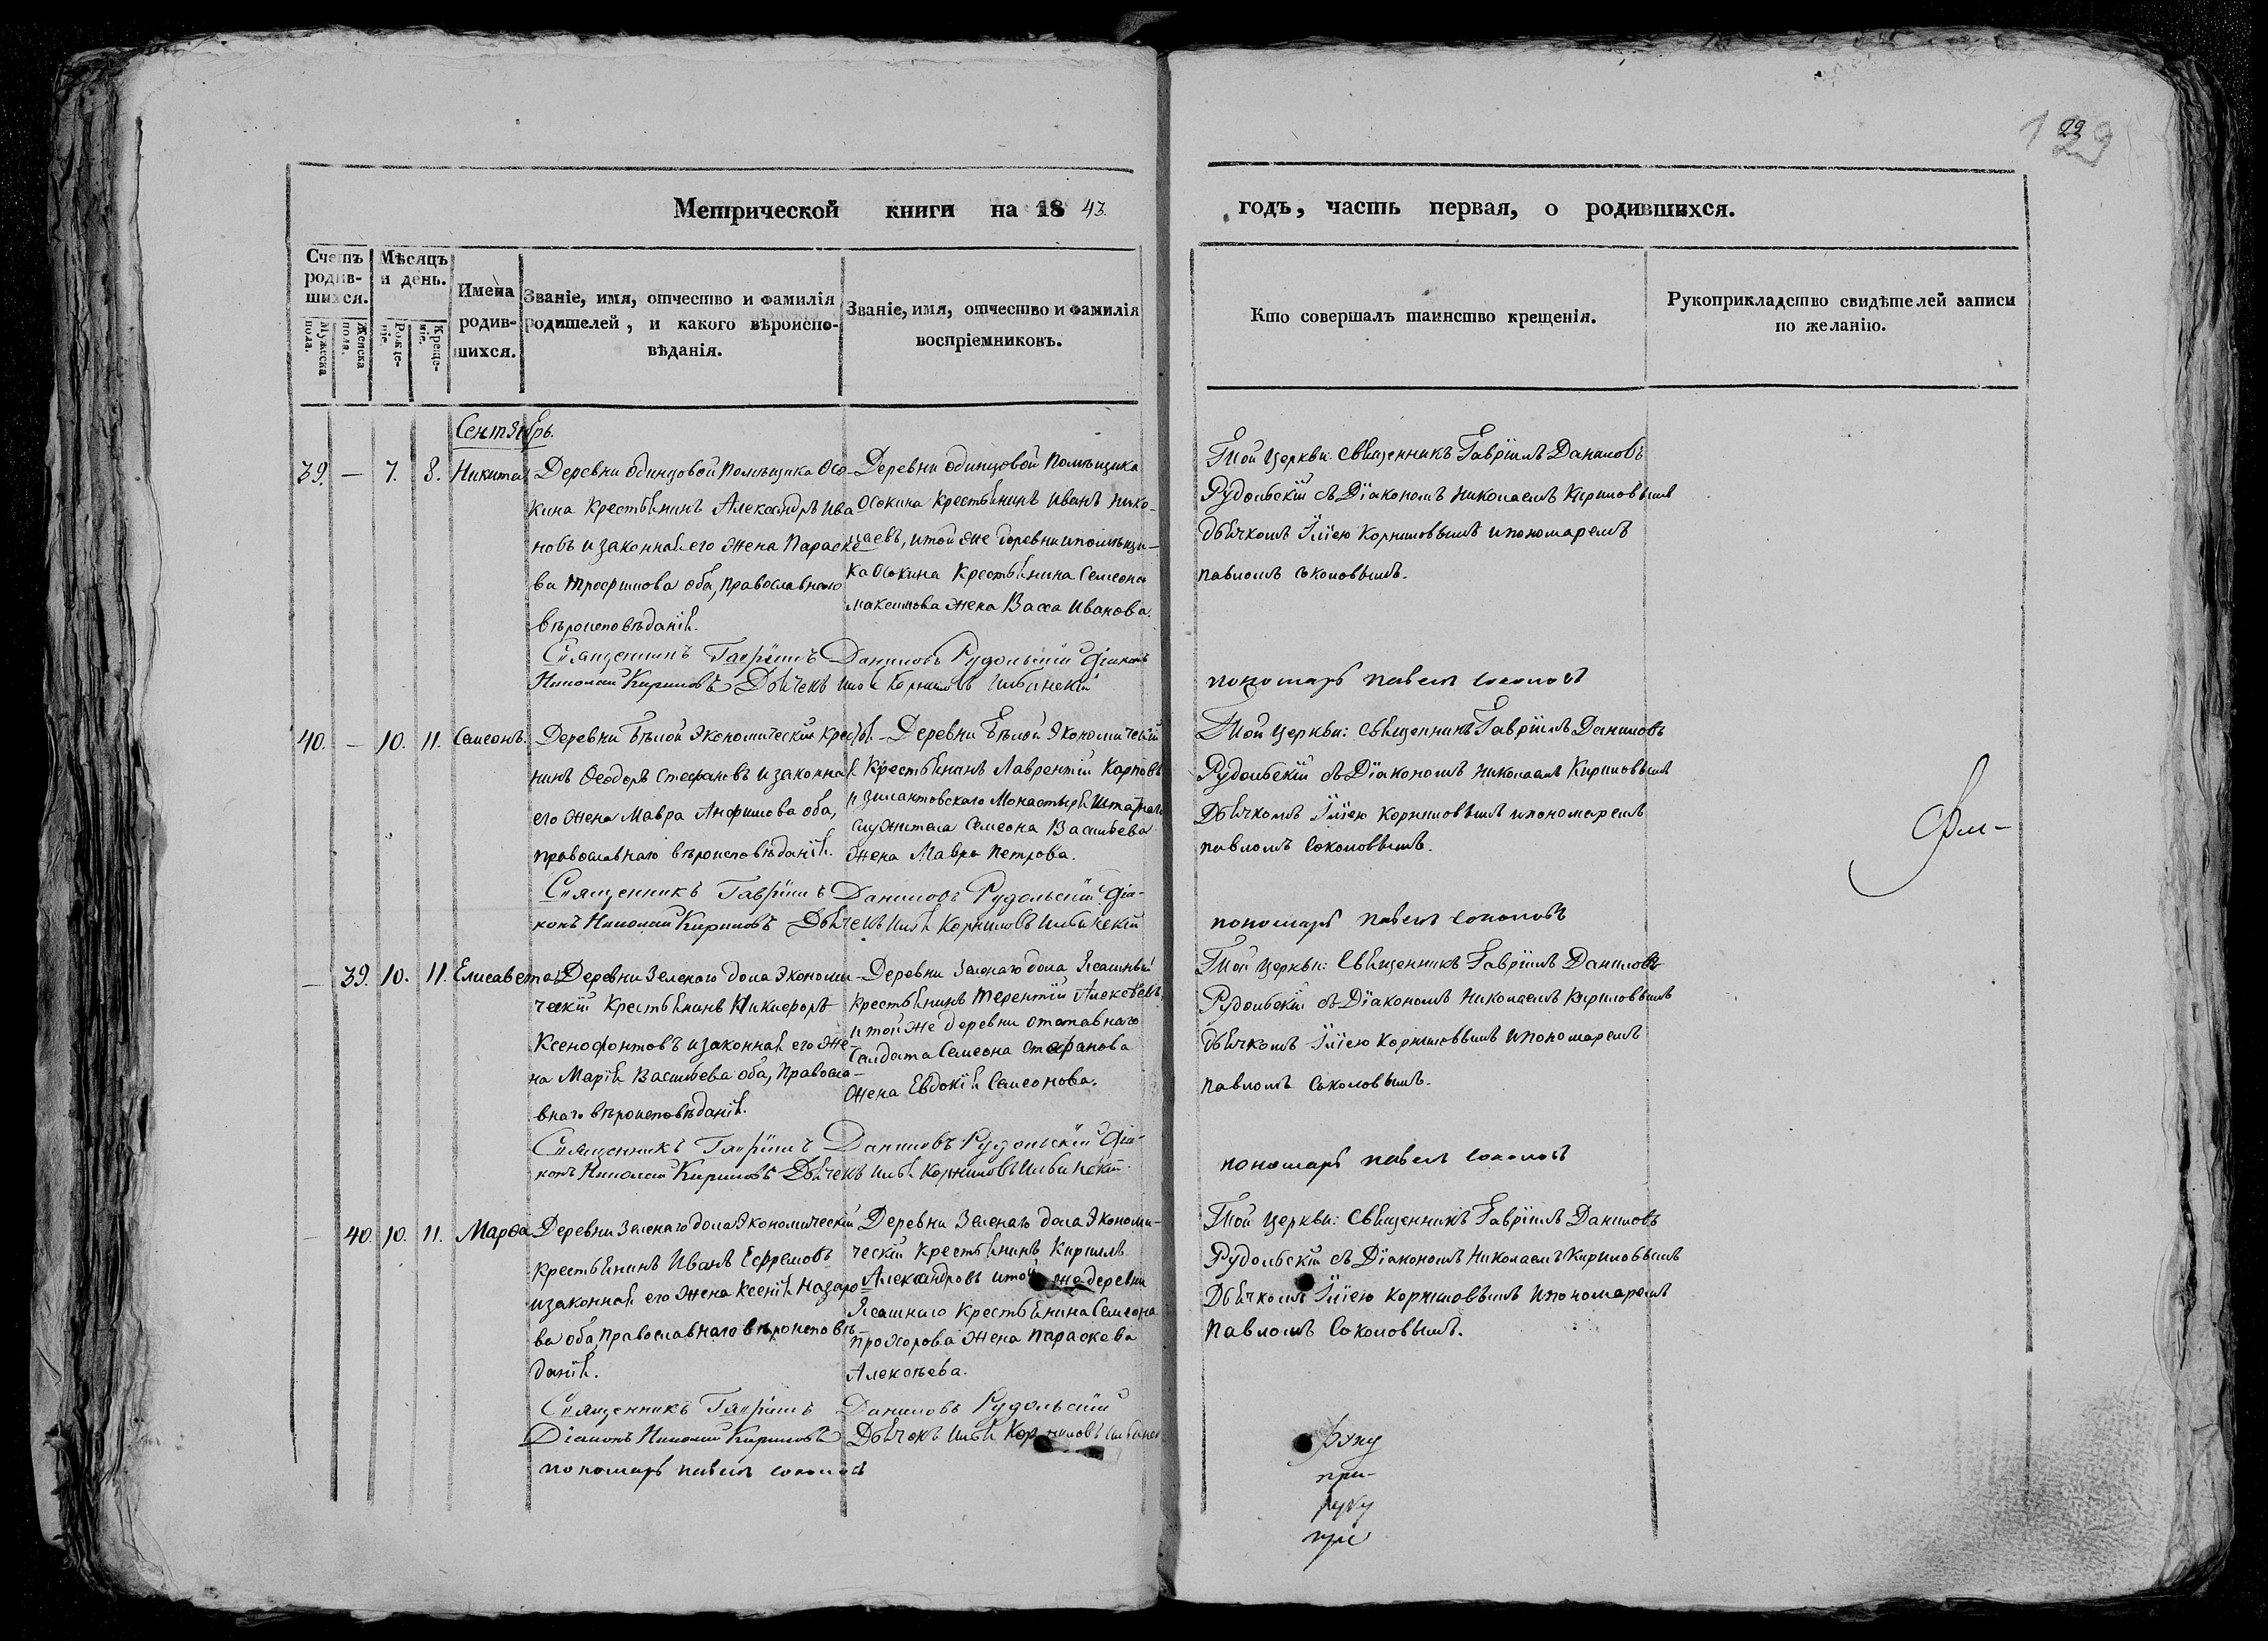 129
29
Метрической книги на 1843.
годъ, часть первая, о родившихся.
Счетъ родившихся.
Мѣсяцъ и день.
Мужеска пола.
Женска пола.
Рожденіе.
Крещеніе.
Имена родившихся.
Званіе, имя, отчество и фамилія родителей, и какого вѣроисповѣданія.
Званіе, имя, отчество и фамилія воспріемниковъ.
Кто совершалъ таинство крещенія.
Рукоприкладство свидѣтелей записи по желанію.
Сентябрь.
39. — 7. 8. Никита
Деревни Одинцовой Помѣщика Осо-
кина Крестьянинъ Александръ Ива
новъ и законная его жена Параске
ва Трофимова оба, православнаго
вѣроисповѣданія.
Деревни Одинцовой Помѣщика
Осокина Крестьянинъ Иванъ Нико-
лаевъ, и той же деревни и помѣщи-
ка Осокина Крестьянина Семеона
Максимова жена Васса Иванова.
Той Церкви: Священникъ Гавріилъ Даниловъ
Рудольскій съ Діакономъ Николаемъ Кириловымъ
дьячкомъ Иліею Корниловымъ и пономаремъ
Павломъ Соколовымъ.
Священникъ Гавріилъ Даниловъ Рудольскій Діаконъ
Николай Кириловъ Дьячекъ Илья Корниловъ Ильинскій
пономарь Павелъ Соколовъ
40. — 10. 11. Семеонъ.
Деревни Бѣлой Экономическій Кресть
нинъ Ѳеодоръ Стефановъ и законная
его жена Мавра Анфимова оба,
православнаго вѣроисповѣданія.
Деревни Бѣлой Экономическій
Крестьянинъ Лаврентій Карповъ
и Зилантовскаго Монастыря Штатнаго
служителя Семеона Васильева
жена Мавра Петрова.
Той Церкви: Священникъ Гавріилъ Даниловъ
Рудольскій съ Діакономъ Николаемъ Кириловымъ
Дьячкомъ Иліею Корниловымъ и пономаремъ
Павломъ Соколовымъ.
Священникъ Гавріилъ Даниловъ Рудольскій Діа-
конъ Николай Кириловъ Дьячекъ Илья Корниловъ Ильинскій
пономарь Павелъ Соколовъ
— 39. 10. 11. Елисавета
Деревни Зеленаго дола Экономи-
ческій Крестьянинъ Никифоръ
Ксенофонтовъ и законная его же-
на Марія Васильева оба, Правосла-
внаго вѣроисповѣданія.
Деревни Зеленаго дола Ясашный
Крестьянинъ Терентій Алексѣевъ,
и той же деревни отставнаго
Солдата Семеона Стефанова
жена Евдокія Семеонова.
Той Церкви: Священникъ Гавріилъ Даниловъ
Рудольскій съ Діакономъ Николаемъ Кириловымъ
дьячкомъ Иліею Корниловымъ и пономаремъ
Павломъ Соколовымъ.
Священникъ Гавріилъ Даниловъ Рудольскій Діа-
конъ Николай Кириловъ Дьячекъ Илья Корниловъ Ильинскій
пономарь Павелъ Соколовъ
— 40. 10. 11. Марѳа
Деревни Зеленаго дола Экономическій
Крестьянинъ Иванъ Ефремовъ
и законная его жена Ксенія Назаро
ва оба, Православнаго вѣроисповѣ
данія.
Деревни Зеленаго дола Экономи-
ческій Крестьянинъ Кириллъ
Александровъ и той же деревни
Ясашнаго Крестьянина Семеона
Прохорова жена Параскева
Алексѣева.
Той Церкви: Священникъ Гавріилъ Даниловъ
Рудольскій съ Діакономъ Николаемъ Кириловымъ
Дьячкомъ Иліею Корниловымъ и пономаремъ
Павломъ Соколовымъ.
Священникъ Гавріилъ Даниловъ Рудольскій
Діаконъ Николай Кириловъ Дьячекъ Илья Корниловъ
пономарь Павелъ Соколовъ
руку
при-
руку
при